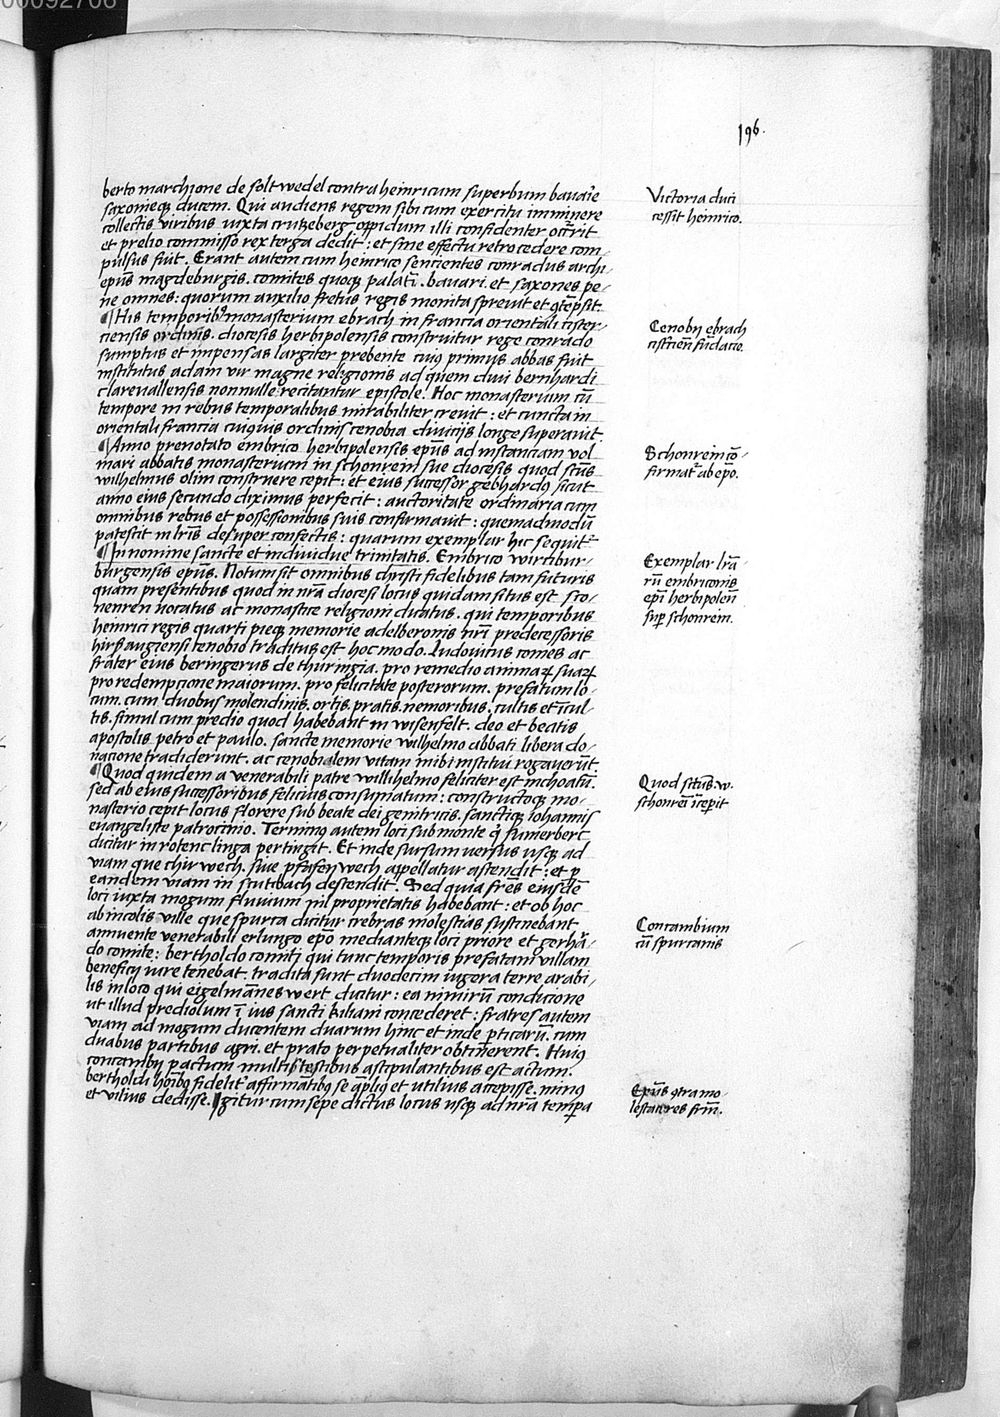 00092706
196.
berto marchione de soltwedel contra heinricum superbum bauarie
saxonieqꝫ ducem. Qui audiens regem sibi cum exercitu imminere
collectis viribus iuxta crutzeberg oppidum illi confidenter occ̄rit
et prelio commisso rex terga dedit: et sine effectu retrocedere com-
pulsus fuit. Erant autem cum heinrico sencientes conradus archi-
ep̄us magdeburgis. comites quoqꝫ palat̄i. bauari. et saxones pe-
ne omnes: quorum auxilio fretus regis monita spreuit et ꝯtēpsit.
¶His temporibꝰ monasterium ebrach in francia orientali cister-
ciensis ordinis. diocesis herbipolensis construitur rege conrado
sumptus et impensas largiter prebente cuiꝰ primus abbas fuit
institutus adam vir magne religionis ad quem diui bernhardi
clareuallensis nonnulle recitantur epistole. Hoc monasterium cū
tempore in rebus temporalibus mirabiliter creuit: et cuncta in
orientali francia cuiuis ordinis cenobia diuicijs longe superauit.
¶Anno prenotato embrico herbipolensis ep̄us ad instanciam vol
mari abbatis monasterium in schonrem sue diocesis quod sctūs
wilhelmus olim construere cepit: et eius successor gebhardꝰ sicut
anno eius secundo diximus perfecit: auctoritate ordinaria cum
omnibus rebus et possessionibus suis confirmauit: quemadmodū
patescit in lr̄is desuper confectis: quarum exemplar hic sequit̄
¶In nomine sancte et indiuidue trinitatis. Embrico wirtzbur-
burgensis ep̄us. Notum sit omnibus christi fidelibus tam futuris
quam presentibus quod in nr̄a diocesi locus quidam situs est sco-
nenren vocatus ac monastice religioni dicatus. qui temporibus
heinrici regis quarti pieqꝫ memorie adelberonis nr̄i predecessoris
hirsaugiensi cenobio traditus est hoc modo. Ludouicus comes ac
frater eius beringerus de thuringia. pro remedio animaꝝ suaꝝ
pro redempcione maiorum. pro felicitate posterorum. prefatum lo-
cum. cum duobus molendinis. ortis pratis. nemoribus. cultis et īcul-
tis. simul cum predio quod habebant in wisenfelt. deo et beatis
apostolis petro et paulo. sancte memorie wilhelmo abbati libera do-
nacione tradiderunt. ac cenobialem vitam inibi institui rogauerūt.
¶Quod quidem a venerabili patre willihelmo feliciter est inchoatū.
sed ab eius successoribus felicius consumatum: constructoqꝫ mo-
nasterio cepit locus florere sub beate dei genitricis. sanctiqꝫ iohannis
euangeliste patrocinio. Terminꝰ autem loci sub monte q̄ sumerberc
dicitur in rotenclinga pertingit. Et inde sursum versus vsqꝫ ad
viam que chirwech. siue pfaffenwech appellatur ascendit: et ꝑ
eandem viam in scutbach descendit. Sed quia fr̄es eiusdē
loci iuxta mogum fluuium nil proprietatis habebant: et ob hoc
ab incolis ville que spurca dicitur crebras molestias sustinebant
annuente venerabili erlungo ep̄o medianteqꝫ loci priore et gerhā-
do comite: bertholdo comiti qui tunc temporis prefatam villam
beneficij iure tenebat. tradita sunt duodecim iugera terre arabi-
lis in loco qui eigelmānes wert dicitur: ea nimirū condicione
ut illud prediolum ī ius sancti kiliani concederet: fratres autem
viam ad mogum ducentem duarum hinc et inde ꝑticarū. cum
duabus partibus agri. et prato perpetualiter obtinerent. Huiꝰ
concambij pactum multis testibus astipulantibus est actum.
bertholdi hoībꝰ fidelit̄ affirmātibꝰ se ampliꝰ et utilius accepisse. minꝰ
et vilius dedisse. ¶Igitur cum sepe dictus locus vsqꝫ ad nr̄a tempora
Victoria duci
cessit heinrico.
Cenobij ebrach
cistr̄ciēn fūdacio.
Schonrein cō-
firmat̄ ab ep̄o.
Exemplar lr̄a-
rū embriconis
ep̄i herbipoleñ
suꝑ schonrein.
Quod sctūs w.
schonrē īcepit
Concambium
cū spurcanis
Ep̄us ꝯtra mo-
lestatores firm̄.